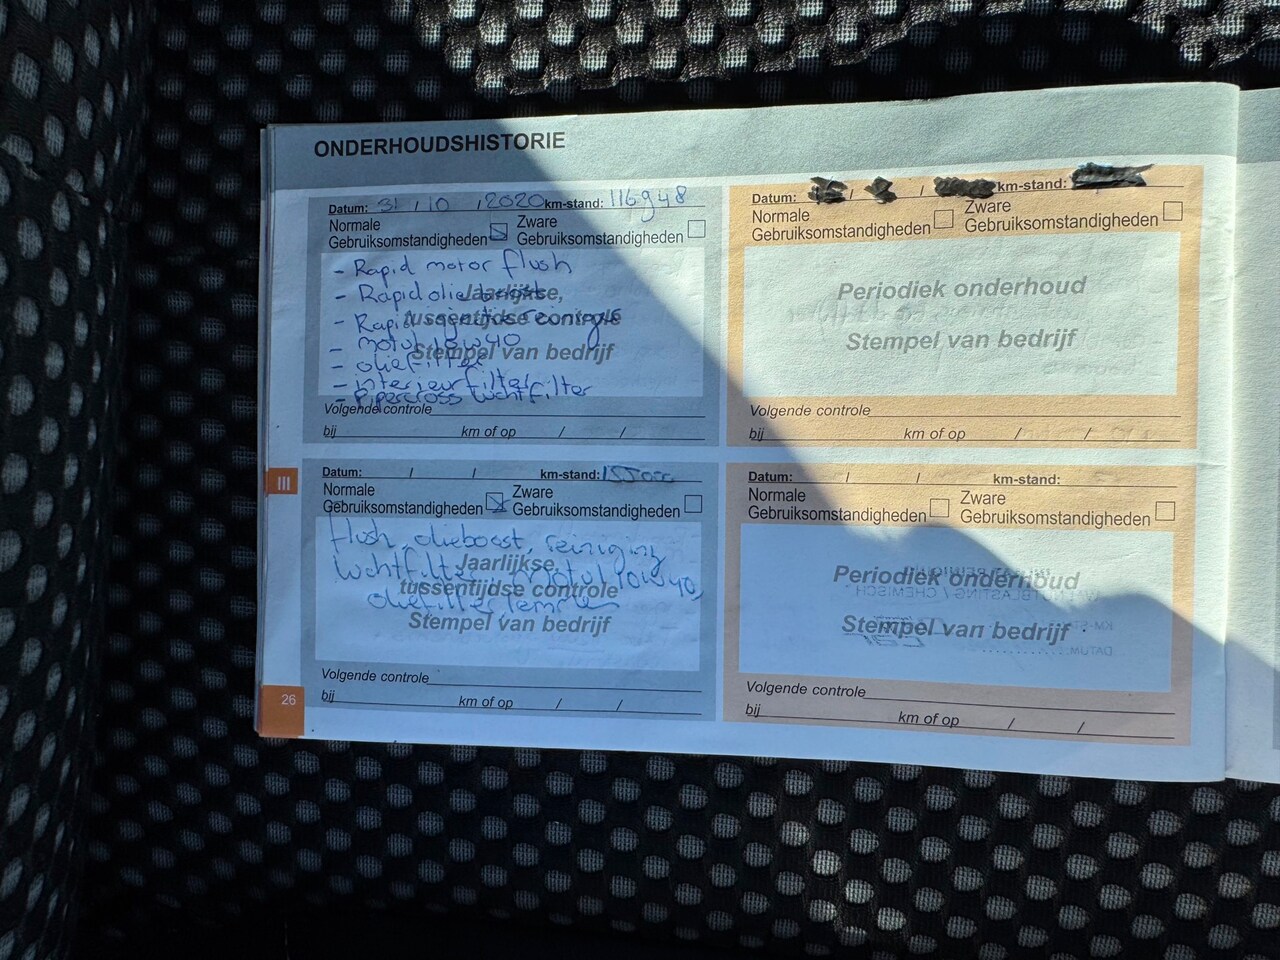 ONDERHOUDSHISTORIE
Datum: 31 / 10 / 2020 km-stand: 116948
Normale Gebruiksomstandigheden
Zware Gebruiksomstandigheden
- Rapid motor flush
- Rapid olie boost
- Rapid injectie reiniging
- Motul 10W40
- oliefilter
- interieurfilter
- Pipercross luchtfilter
Jaarlijkse,
tussentijdse controle
Stempel van bedrijf
Volgende controle
bij km of op / /
Datum: / / km-stand:
Normale Gebruiksomstandigheden
Zware Gebruiksomstandigheden
Periodiek onderhoud
Stempel van bedrijf
Volgende controle
bij km of op / /
III
Datum: / / km-stand: 155000
Normale Gebruiksomstandigheden
Zware Gebruiksomstandigheden
flush, olieboost, reiniging
luchtfilter, Motul 10W40,
oliefilter
Jaarlijkse,
tussentijdse controle
Stempel van bedrijf
Volgende controle
bij km of op / /
Datum: / / km-stand:
Normale Gebruiksomstandigheden
Zware Gebruiksomstandigheden
Periodiek onderhoud
Stempel van bedrijf
Volgende controle
bij km of op / /
26